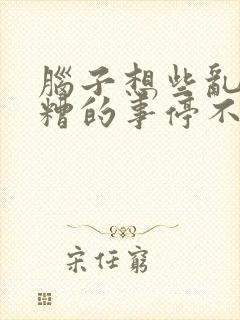 腦子想些亂
糟的事停不
宋任窮